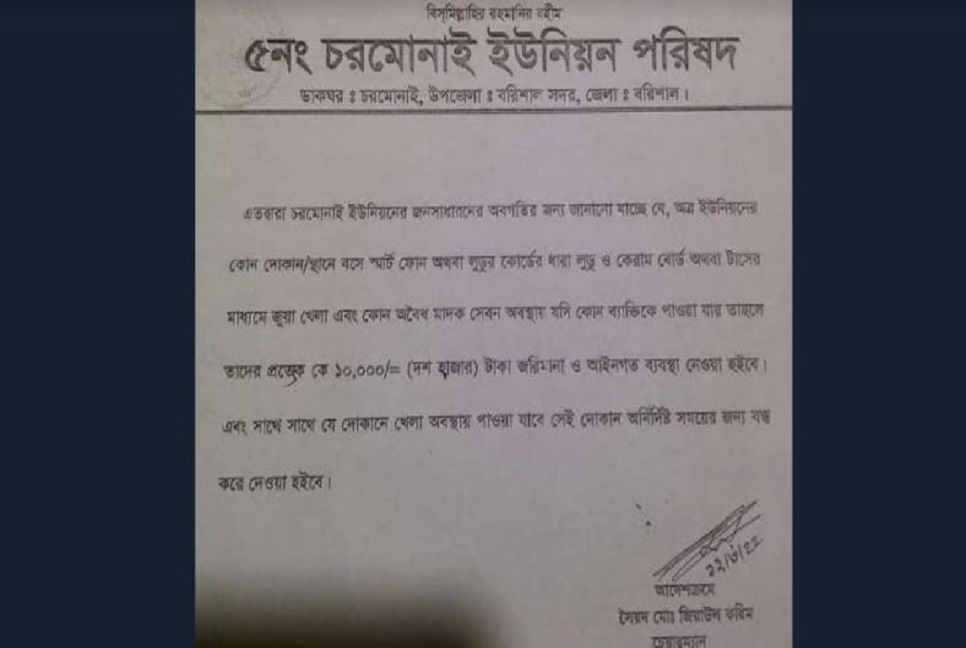 বিসমিল্লাহির রহমানির রহীম
৫নং চরমোনাই ইউনিয়ন পরিষদ
ডাকঘর ঃ চরমোনাই, উপজেলা ঃ বরিশাল সদর, জেলা ঃ বরিশাল।
এতদ্বারা চরমোনাই ইউনিয়নের জনসাধারনের অবগতির জন্য জানানো যাচ্ছে যে, অত্র ইউনিয়নের
কোন দোকান/স্থানে বসে স্মার্ট ফোন অথবা লুডুর কোর্ডের দ্বারা লুডু ও কেরাম বোর্ড অথবা টাসের
মাধ্যমে জুয়া খেলা এবং কোন অবৈধ মাদক সেবন অবস্থায় যদি কোন ব্যাক্তিকে পাওয়া যায় তাহলে
তাদের প্রত্যেক কে ১০,০০০/= (দশ হাজার) টাকা জরিমানা ও আইনগত ব্যবস্থা নেওয়া হইবে।
এবং সাথে সাথে যে দোকানে খেলা অবস্থায় পাওয়া যাবে সেই দোকান অনির্দিষ্ট সময়ের জন্য বন্ধ
করে দেওয়া হইবে।
২২/৬/২২
আদেশক্রমে
সৈয়দ মোঃ জিয়াউল করিম
চেয়ারম্যান